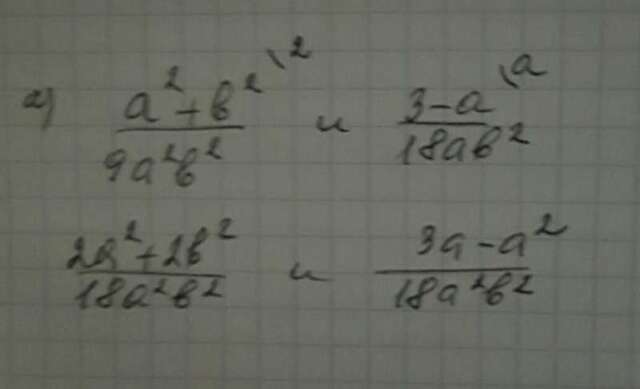 а) (a² + b²)/(9a²b²) \2 и (3 - a)/(18ab²) \a
(2a² + 2b²)/(18a²b²) и (3a - a²)/(18a²b²)